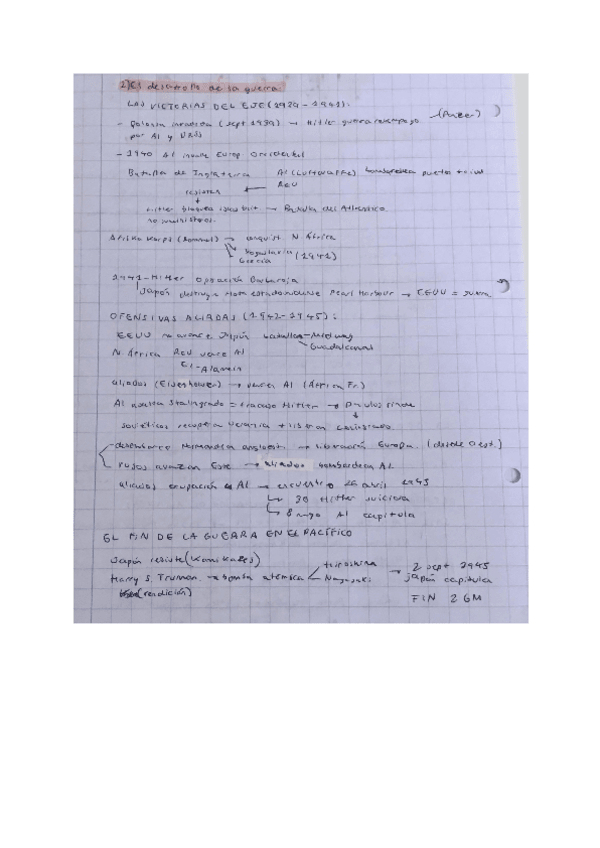 2) El desarrollo de la guerra.
LAS VICTORIAS DEL EJE (1939-1941):
- Polonia invadida (sept 1939) → Hitler guerra relámpago (Panzer)
por Al y URSS
- 1940 Al invade Europ Occidental
Batalla de Inglaterra Al (Luftwaffe) bombardea puerto + civil
resisten ← RU
Hitler bloquea → Batalla del Atlántico
no suministros.
Afrika Korps (Rommel) → conquist. N. África
Yugoslavia
Grecia (1941)
1941 - Hitler Operación Barbaroja
Japón destruye flota estadounidense Pearl Harbour → EEUU = guerra
OFENSIVAS ALIADAS (1942-1945):
EEUU no avance Japón batallas - Midway
Guadalcanal
N. África RU vence Al
El-Alamein
aliados (Eisenhower) → vence Al (África Fr.)
Al Stalingrado = fracaso Hitler → Paulus rinde
soviéticos recuperan Ucrania +
desembarco Normandía → liberación Europa. (desde Oest.)
rusos avanzan Este → aliados bombardean Al.
aliados ocupación Al → encuentro 26 abril 1945
30 Hitler suicida
8 mayo Al capitula
EL FIN DE LA GUERRA EN EL PACÍFICO
Japón resiste (Kamikazes)
Harry S. Truman → bomba atómica Hiroshima Nagasaki → 2 sept 1945
(rendición) Japón capitula
FIN 2 GM